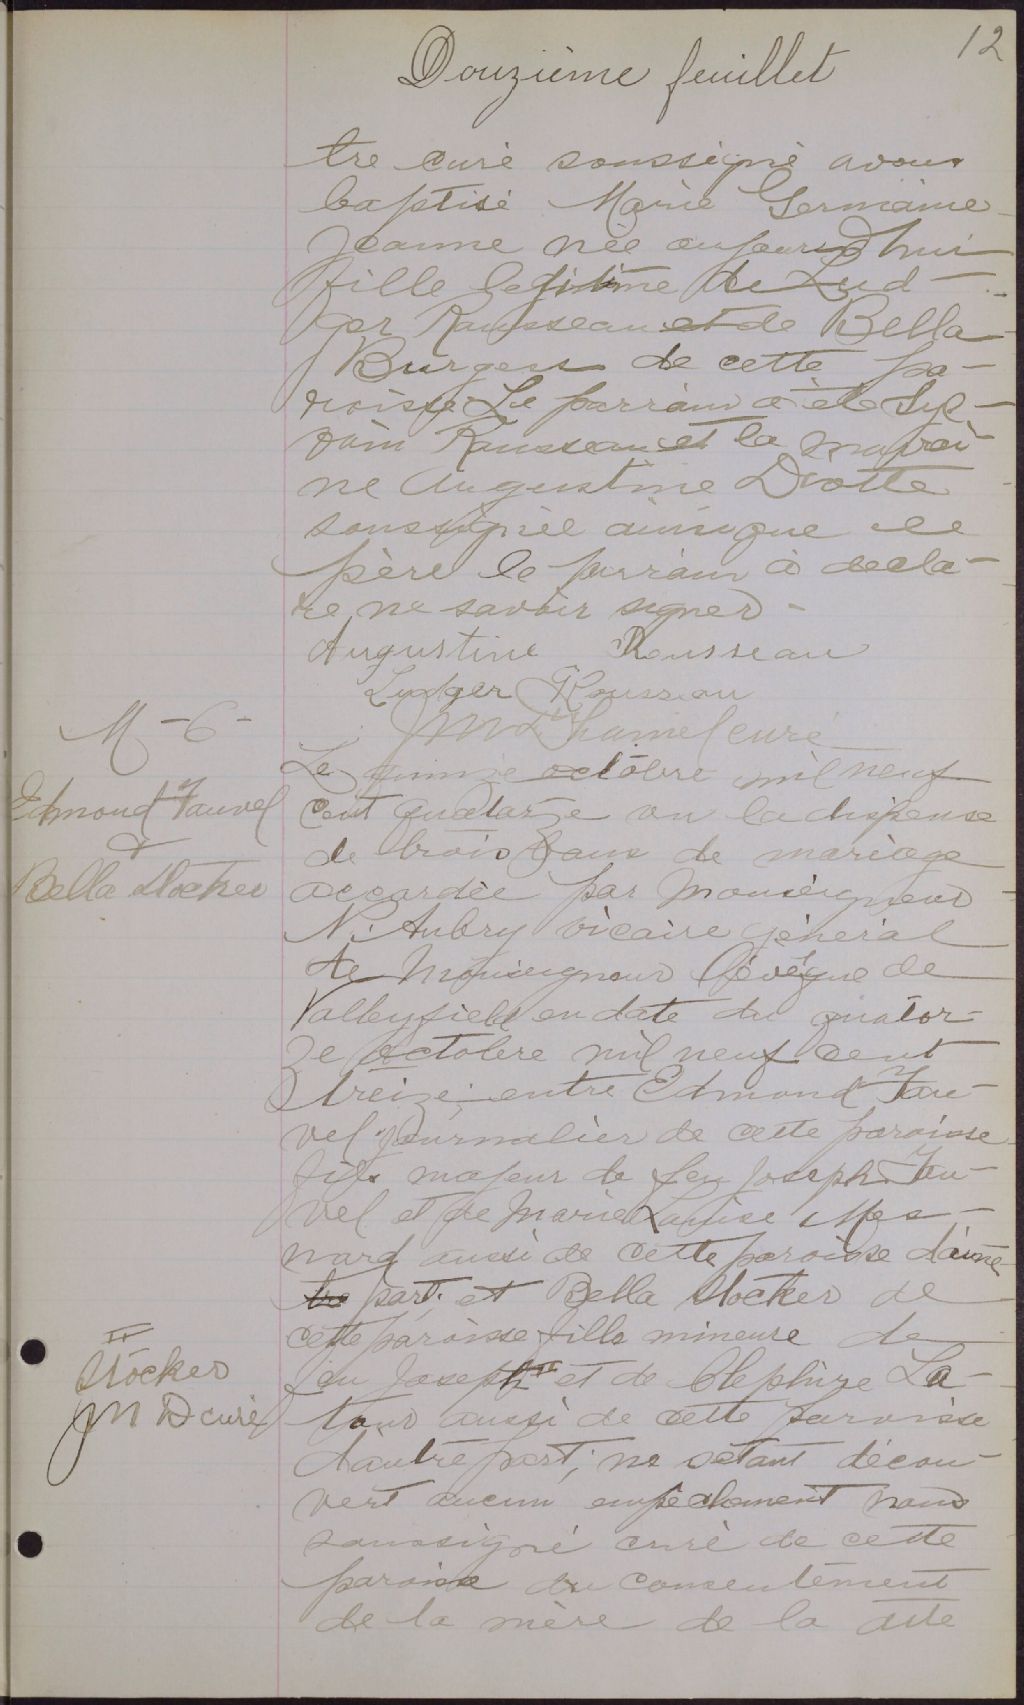 12
Douzième feuillet
tre curé soussigné avons
baptisé Marie Germaine
Jeanne née aujourd'hui
fille legitime de Lud-
ger Rousseau et de Bella
Burgess de cette pa-
roisse Le parrain a été Syl-
vain Rousseau et la marrai-
ne Augustine Diotte
soussignée ainsi que le
père le parrain a décla-
ré ne savoir signer -
Augustine Rousseau
Ludger Rousseau
curé
M-6-
Edmond Fauvel
&
Bella Stocker
Le quinze octobre mil neuf
cent quatorze vu la dispense
de trois bans de mariage
accordée par Monseigneur
N. Aubry vicaire général
de Monseigneur l'évêque de
Valleyfield en date du quator-
ze octobre mil neuf cent
treize entre Edmond Fau-
vel journalier de cette paroisse
fils majeur de feu Joseph Fau-
vel et de Marie Louise Mes-
nard aussi de cette paroisse d'une
tre part; et Bella Stocker de
cette paroisse fille mineure de
feu Joseph II et de Clephire La-
tour aussi de cette paroisse
d'autre part; ne s'étant décou-
vert aucun empêchement nous
soussigné curé de cette
paroisse du consentement
de la mère de la dite
II
Stocker
JMD curé